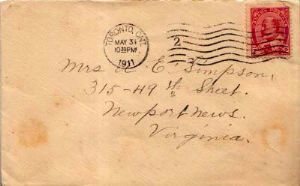 TORONTO, ONT.
MAY 31
1911
2
Mrs A. E. Simpson,
315-49th Street.
Newport News.
Virginia.